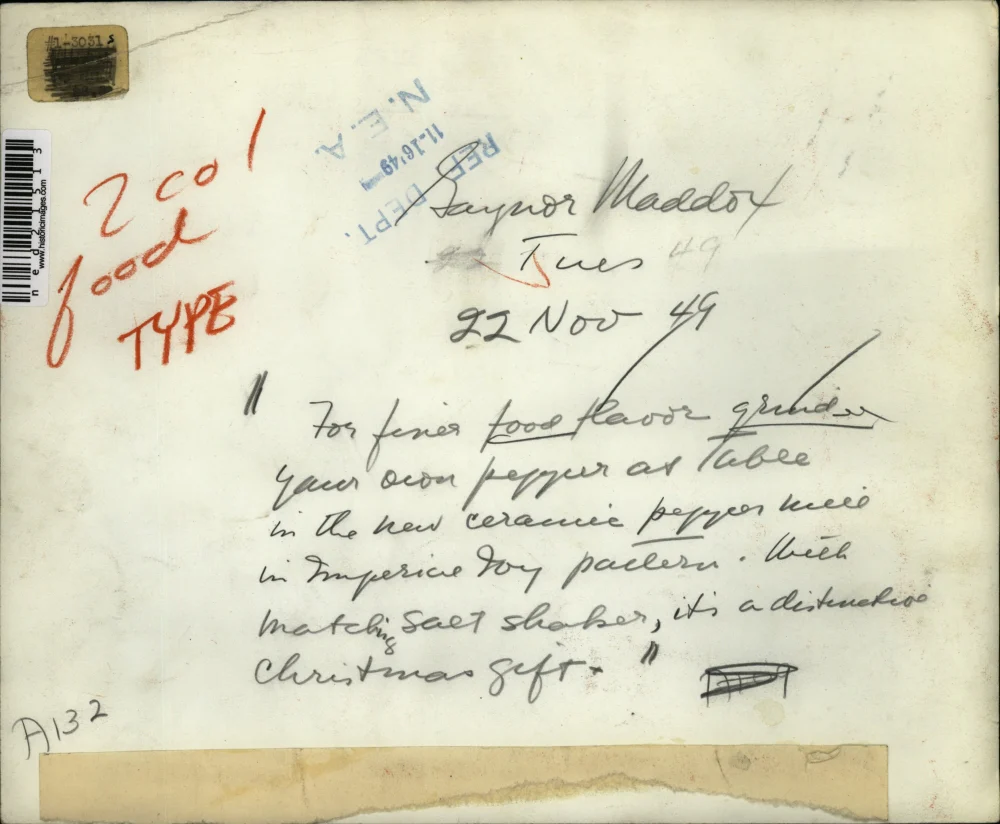 #1-3031 s
2 col
food
TYPE
N.E.A.
11-16'49
REF. DEPT.
www.historicimages.com
Gaynor Maddox
Tues 49
22 Nov 49
" For finer food flavor grinder
your own pepper at Table
in the new ceramic pepper mill
in Imperial Ivy pattern. With
matching salt shaker, it's a distinctive
Christmas gift. "
A132